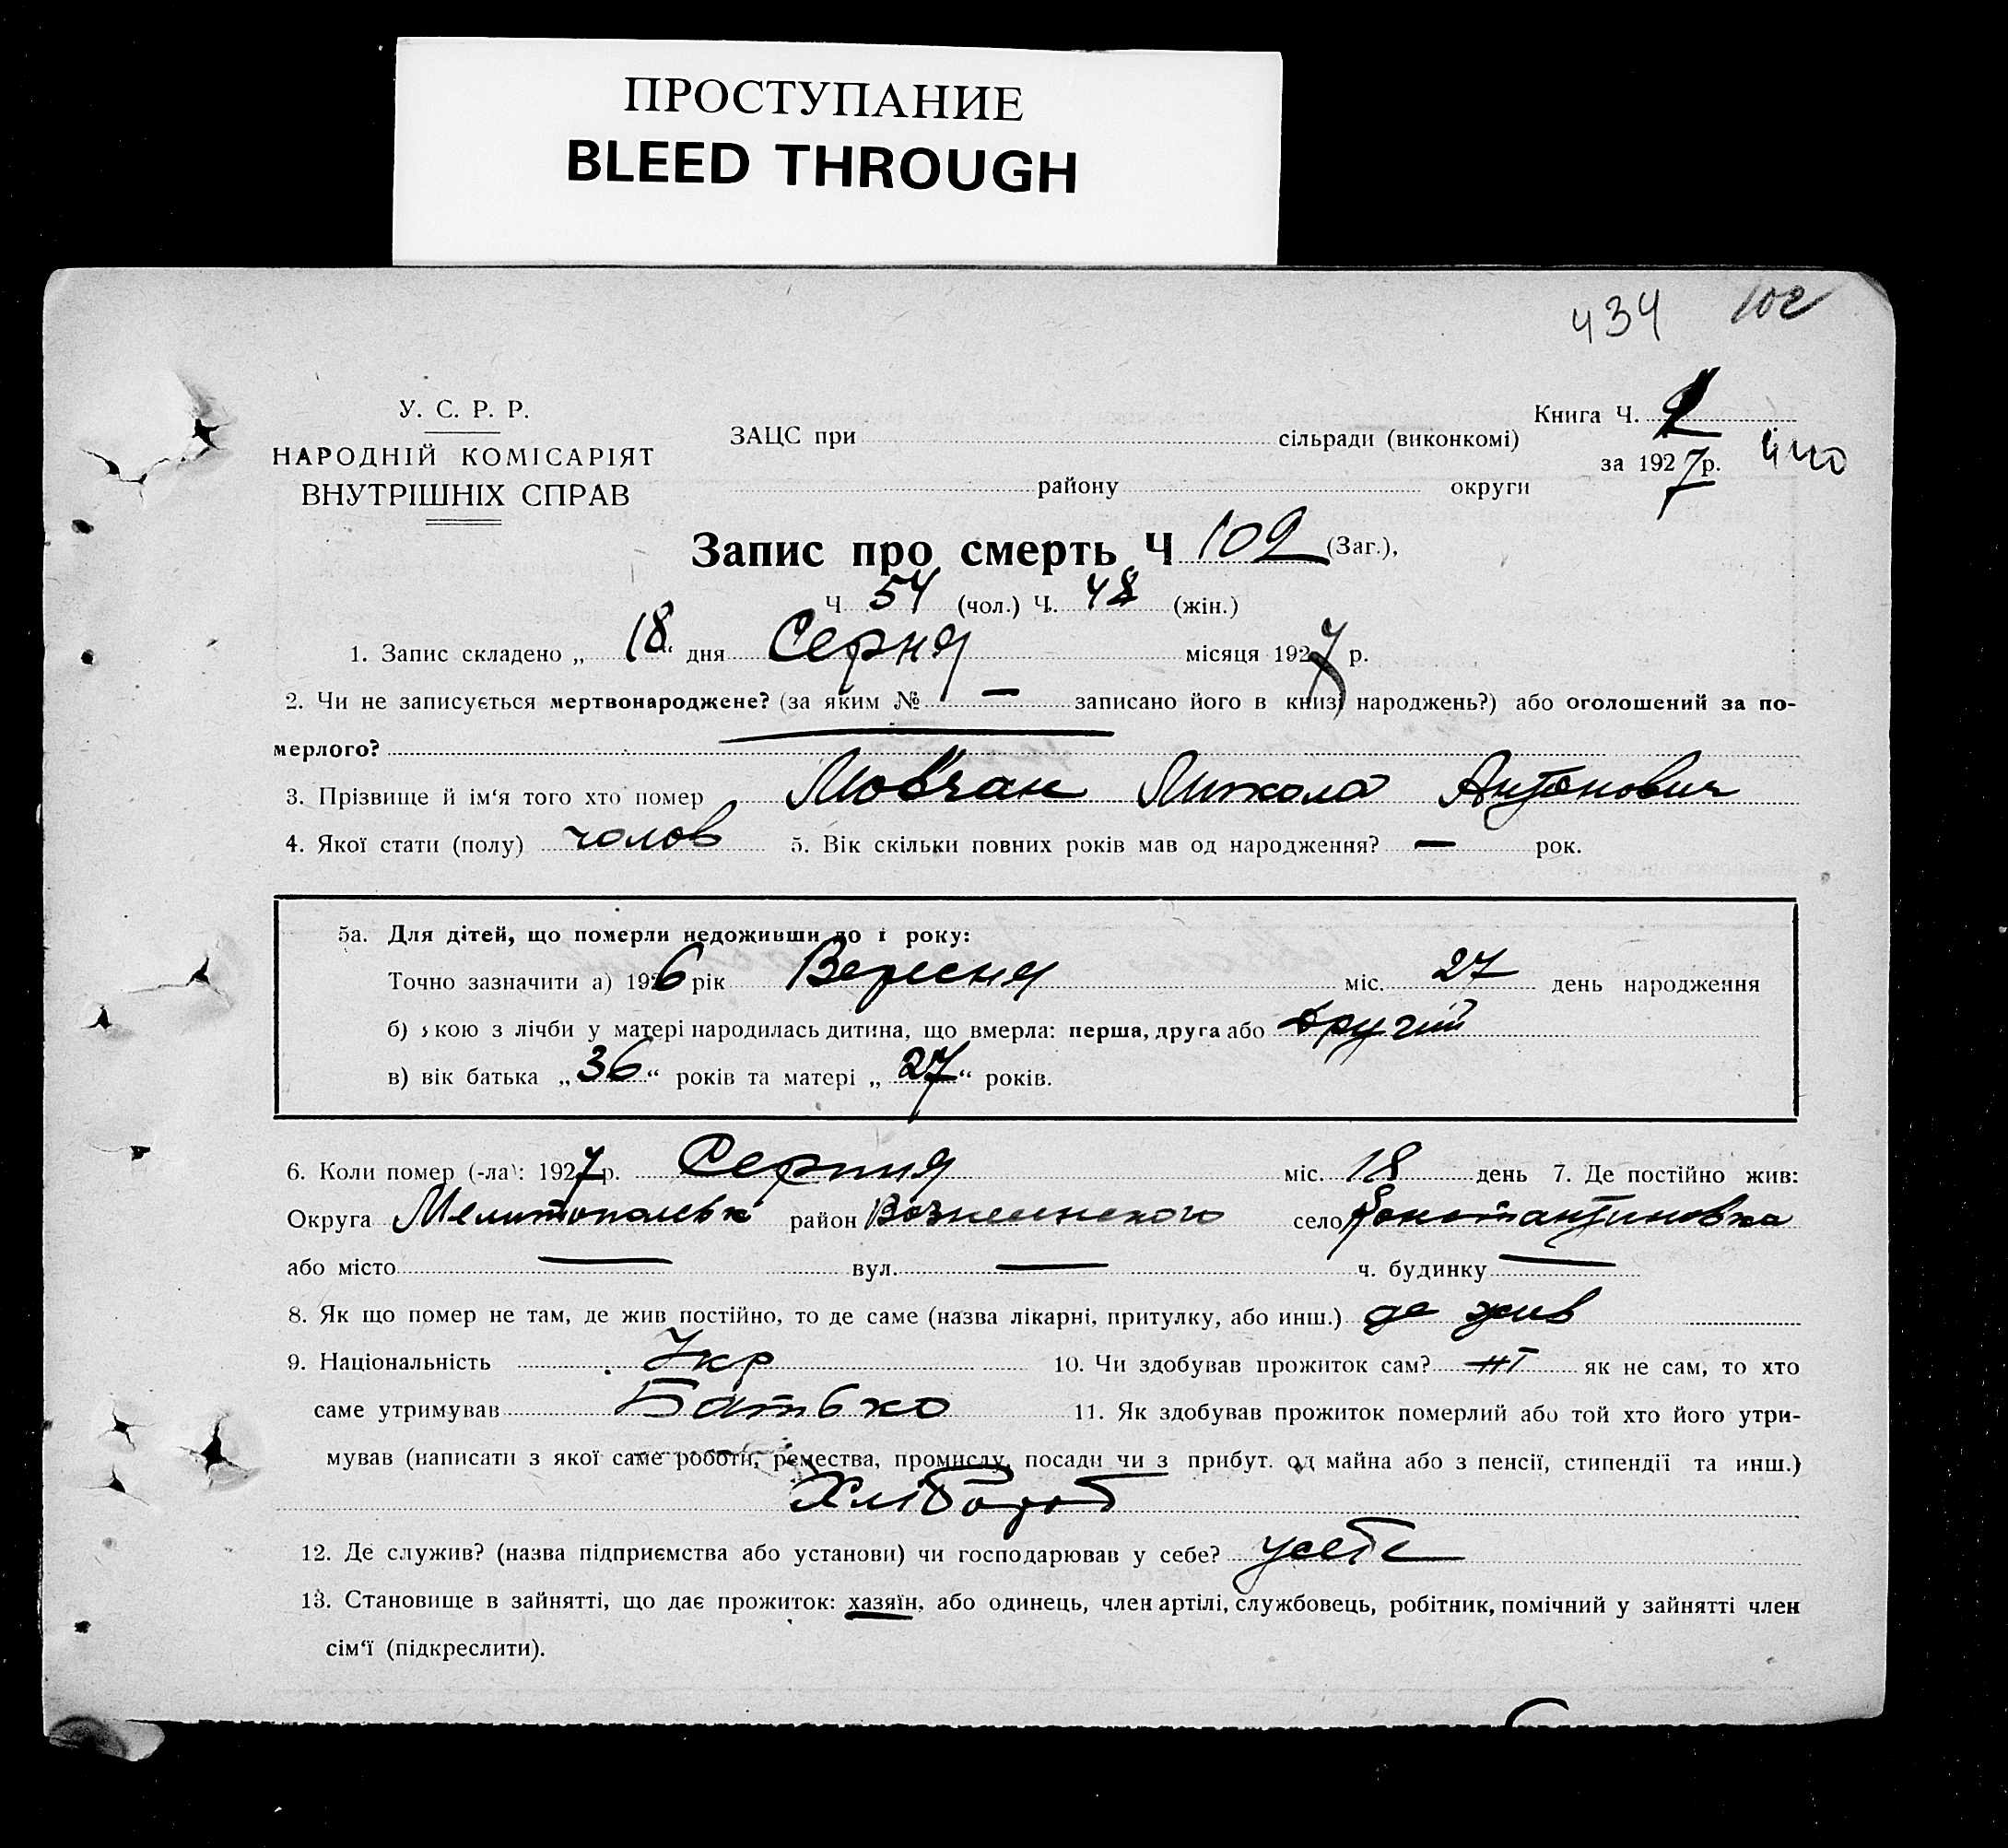 ПРОСТУПАНИЕ
BLEED THROUGH
434
У. С. Р. Р.
НАРОДНІЙ КОМІСАРІЯТ
ВНУТРІШНІХ СПРАВ
Книга Ч.
ЗАЦС при сільради (виконкомі)
за 1927 р.
440
району округи
Запис про смерть Ч 102 (Заг.),
Ч 54 (чол.) Ч. 48 (жін.)
1. Запис складено „ 18 “ дня Серня місяця 1927 р.
2. Чи не записується мертвонароджене? (за яким № — записано його в книзі народжень?) або оголошений за по-
мерлого?
3. Прізвище й ім‘я того хто помер Мовчан Микола Антонович
4. Якої стати (полу) чолов 5. Вік скільки повних років мав од народження? — рок.
5а. Для дітей, що померли недоживши до 1 року:
Точно зазначити а) 1926 рік Вересня міс. 27 день народження
б) якою з лічби у матері народилась дитина, що вмерла: перша, друга або другий
в) вік батька „ 36 “ років та матері „ 27 “ років.
6. Коли помер (-ла): 1927 р. Серпня міс. 18 день 7. Де постійно жив:
Округа Мелитопольськ район Вознесенского село Константиновка
або місто — вул. — ч. будинку —
8. Як що помер не там, де жив постійно, то де саме (назва лікарні, притулку, або инш.) де жив
9. Національність Укр 10. Чи здобував прожиток сам? ні як не сам, то хто
саме утримував Батько 11. Як здобував прожиток померлий або той хто його утри-
мував (написати з якої саме роботи, ремества, промислу, посади чи з прибут. од майна або з пенсії, стипендії та инш.)
Хлібороб
12. Де служив? (назва підприємства або установи) чи господарював у себе? усебе
13. Становище в зайнятті, що дає прожиток: хазяїн, або одинець, член артілі, службовець, робітник, помічний у зайнятті член
сім‘ї (підкреслити).